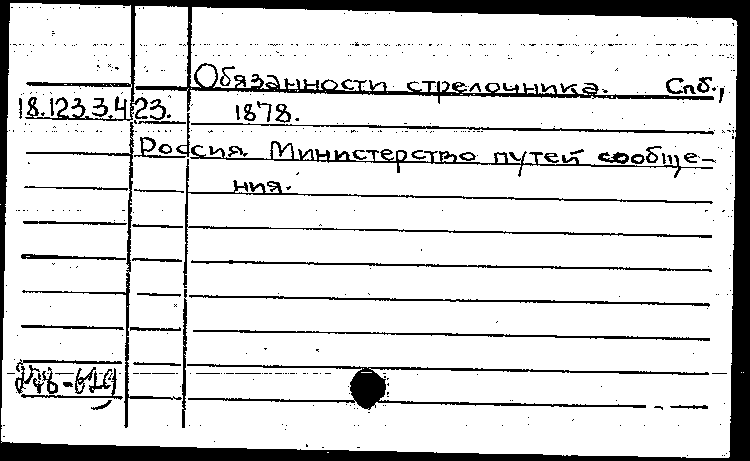 Обязанности стрелочника. Спб.,
18.123.3.4 23. 1878.
Россия. Министерство путей сообще-
ния.